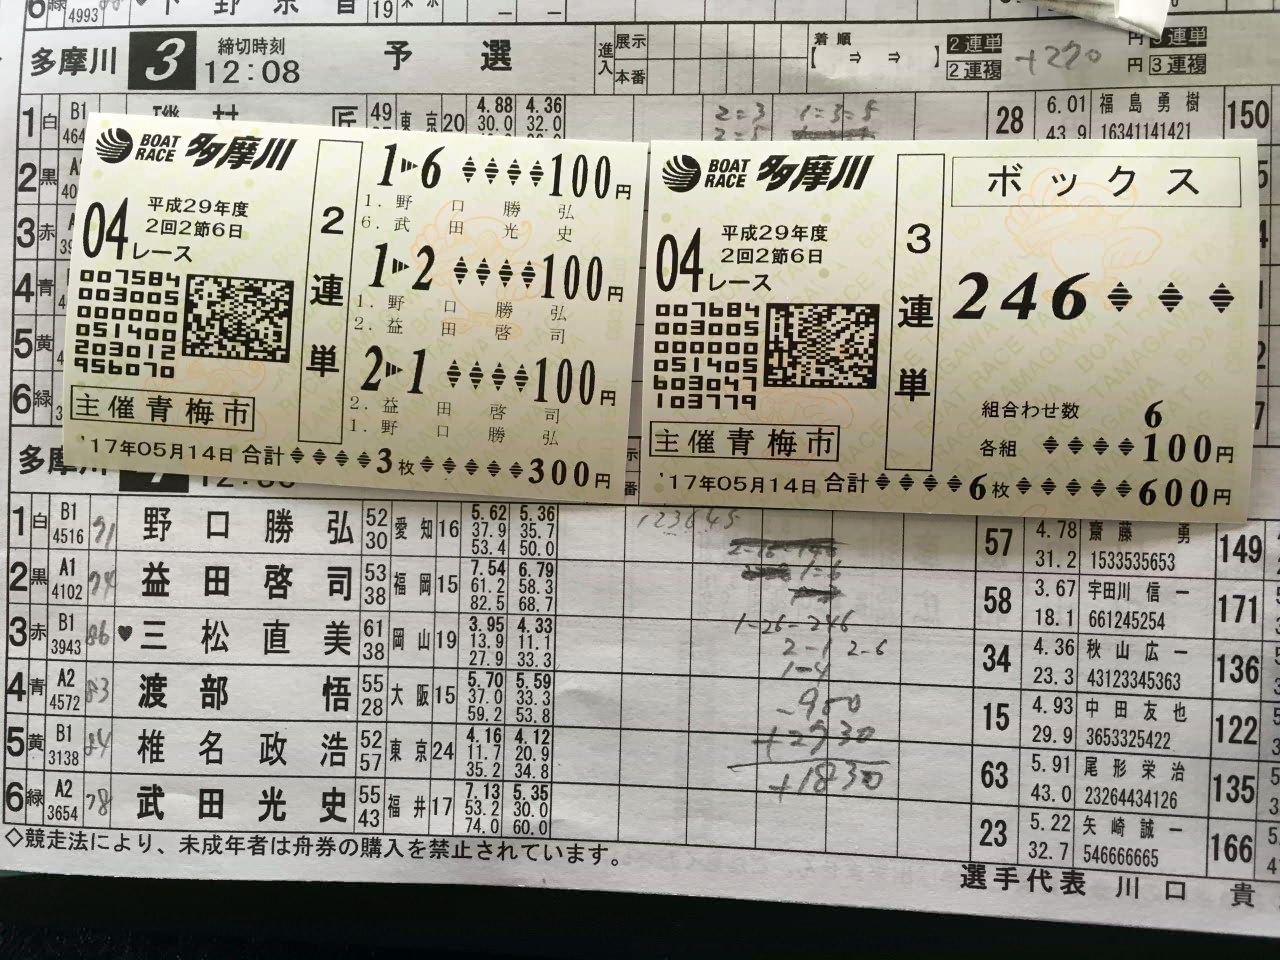 4993
19
多摩川 3 締切時刻 12:08 予選 進入 展示 本番 着順 【 ⇒ ⇒ 】 2連単 2連複 +270 円 円 3連単 3連複
1 白 B1 匠 49 東京 20 4.88 4.36 2=3 1=3=5 28 6.01 福島勇樹 150
30.0 32.0 2=5 43.9 16341141421
2 黒
3 赤
4 青
5 黄
6 緑
BOAT RACE 多摩川
平成29年度
2回2節6日
04 レース
007584
003005
000000
051400
203012
956070
主催青梅市
2連単
1▶6 100円
1. 野口勝弘
6. 武田光史
1▶2 100円
1. 野口勝弘
2. 益田啓司
2▶1 100円
2. 益田啓司
1. 野口勝弘
'17年05月14日 合計 3枚 300円
BOAT RACE 多摩川
平成29年度
2回2節6日
04 レース
007684
003005
000000
051405
603047
103779
主催青梅市
3連単
ボックス
246
組合わせ数 6
各組 100円
'17年05月14日 合計 6枚 600円
多摩川
1 白 B1 4516 71 野口勝弘 52 30 愛知 16 5.62 5.36 123645 57 4.78 齋藤勇 149
37.9 35.7 31.2 1533535653
53.4 50.0
2 黒 A1 4102 74 益田啓司 53 38 福岡 15 7.54 6.79 1=6 58 3.67 宇田川信一 171
61.2 58.3 18.1 661245254
82.5 68.7
3 赤 B1 3943 86 ♥三松直美 61 38 岡山 19 3.95 4.33 1-26-246 34 4.36 秋山広一 136
13.9 11.1 2-1 2-6 23.3 43123345363
27.9 33.3 1-4
4 青 A2 4572 83 渡部悟 55 28 大阪 15 5.70 5.59 -900 15 4.93 中田友也 122
37.0 33.3 29.9 3653325422
59.2 53.8
5 黄 B1 3138 84 椎名政浩 52 57 東京 24 4.16 4.12 +2730 63 5.91 尾形栄治 135
11.7 20.9 +1830 43.0 23264434126
35.2 34.8
6 緑 A2 3654 78 武田光史 55 43 福井 17 7.13 5.35 23 5.22 矢崎誠一 166
53.2 30.0 32.7 546666665
74.0 60.0
◇競走法により、未成年者は舟券の購入を禁止されています。
選手代表 川口 貴